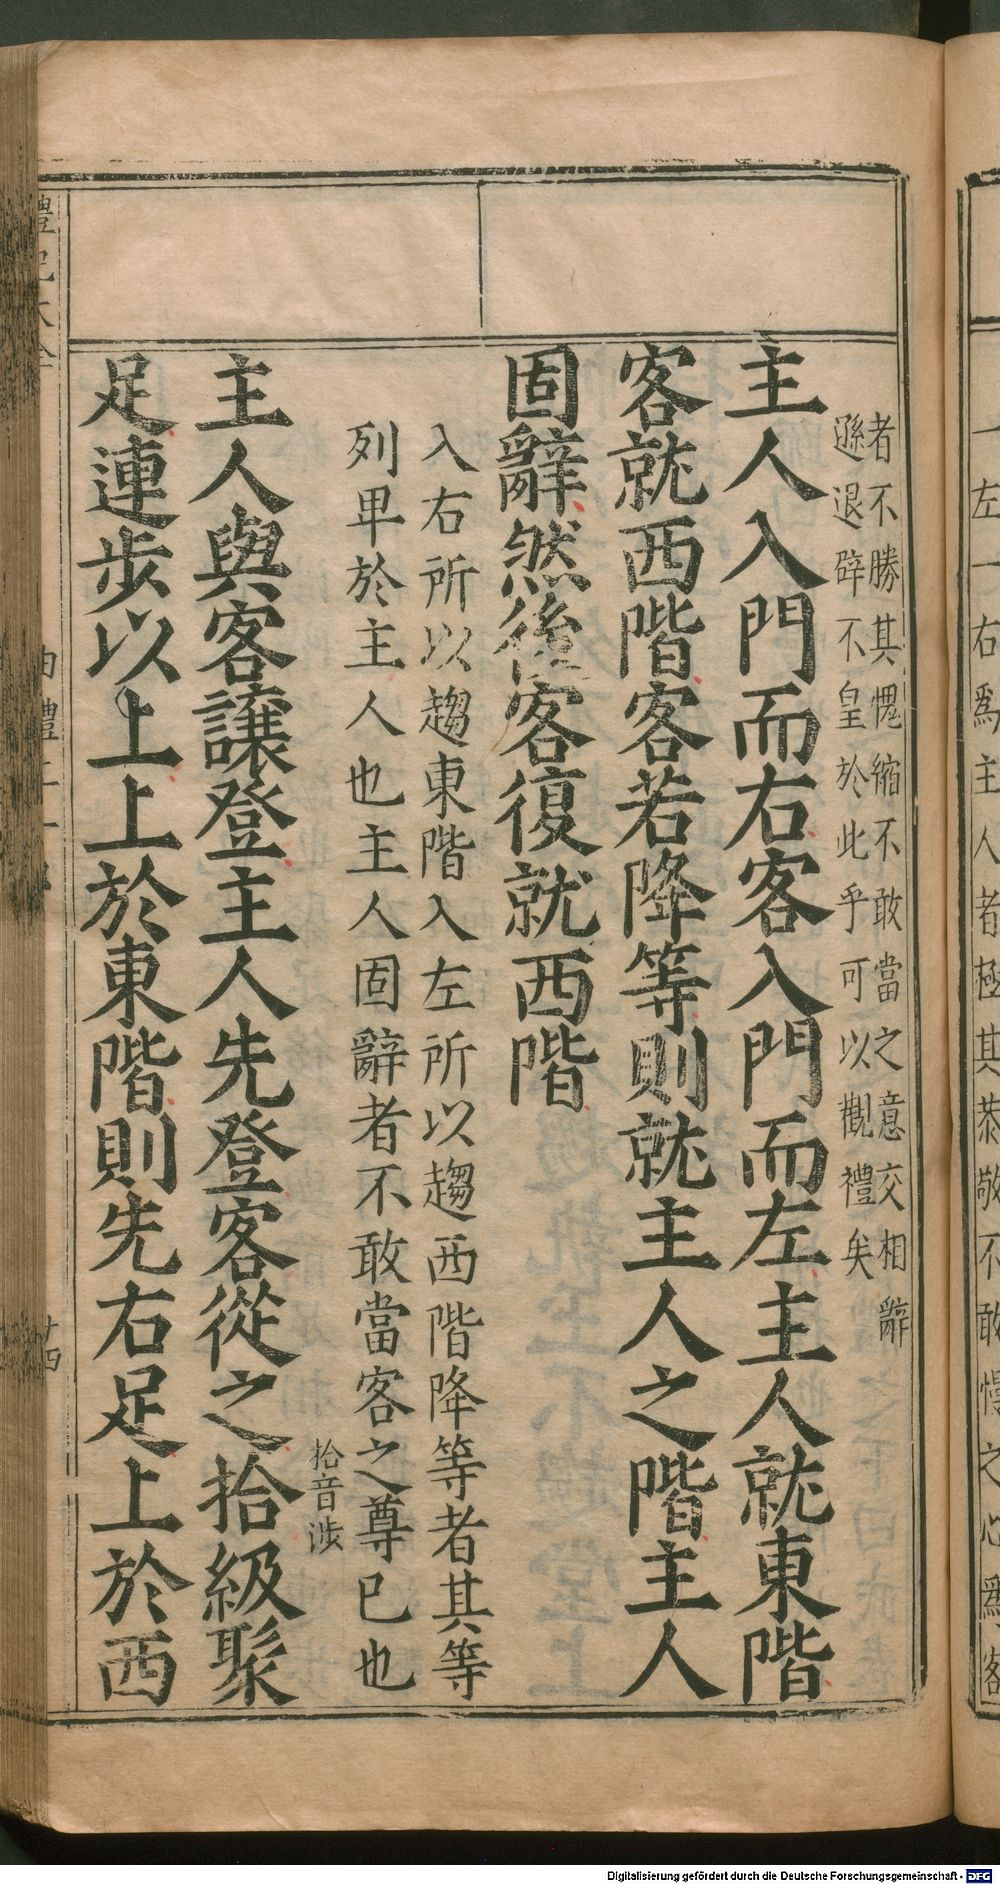 一左一右爲主人者極其恭敬不敢慢之心爲客
者不勝其愳縮不敢當之意交相辭
遜退辟不皇於此乎可以觀禮矣
主人入門而右客入門而左主人就東階
客就西階客若降等則就主人之階主人
固辭然後客復就西階
入右所以趨東階入左所以趨西階降等者其等
列卑於主人也主人固辭者不敢當客之尊已也
拾音涉
主人與客讓登主人先登客從之拾級聚
足連步以上上於東階則先右足上於西
禮記大全
曲禮上
廿四
Digitalisierung gefördert durch die Deutsche Forschungsgemeinschaft - DFG